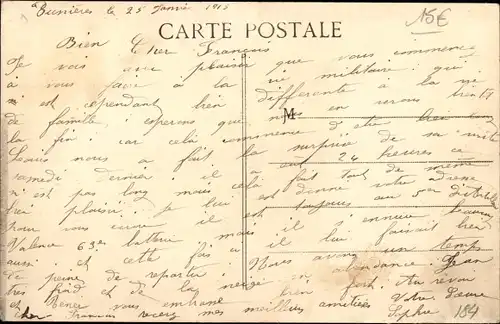 le 25 Janvier 1915
15€
CARTE POSTALE
Bien Cher François
Je vois avec plaisir que vous commencez
à vous faire à la vie militaire qui
est cependant bien différente à la
de famille; esperons que nous en verrons bientôt
la fin; car cela commence d'être bien long
Louis nous a fait la surprise de sa visite
samedi dernier il a eu 24 heures ce
n'est pas long mais cela fait tout de même
bien plaisir. Je lui ai donné votre adresse
pour vous écrire il est toujours au 5er d'Artillerie
Valence 63e batterie mais il s'ennuie beaucoup
aussi et cette fois il lui faisait bien
de peine de repartir. Nous avons un temps
très froid et de la neige en abondance. Jean
et Renée vous embrasse bien fort. Au revoir
cher François recevez mes meilleures amitiés Votre
Sophie
184